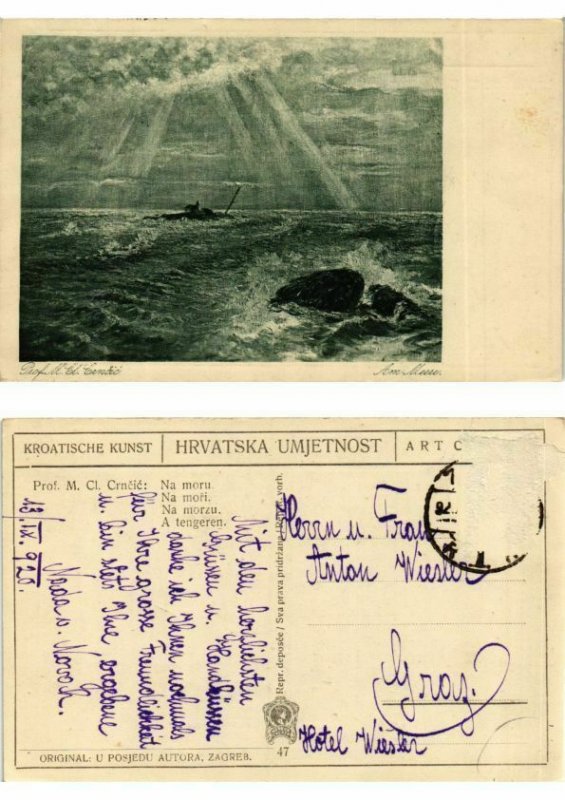 Prof. M. Cl. Crnčić
Am Meere.
KROATISCHE KUNST
HRVATSKA UMJETNOST
ART C
Prof. M. Cl. Crnčić: Na moru.
Na moři.
Na morzu.
A tengeren.
13./IX. 925.
Mit den herzlichsten
Grüssen u. Handküssen
danke ich Ihnen nochmals
für Ihre grosse Freundlichkeit
u. bin stets Ihre ergebene
Nada v. Novak.
Repr. deposée / Sva prava pridržana / Repr. vorb.
47
Herrn u. Frau
Anton Wiesler
Graz.
Hotel Wiesler
ORIGINAL: U POSJEDU AUTORA, ZAGREB.